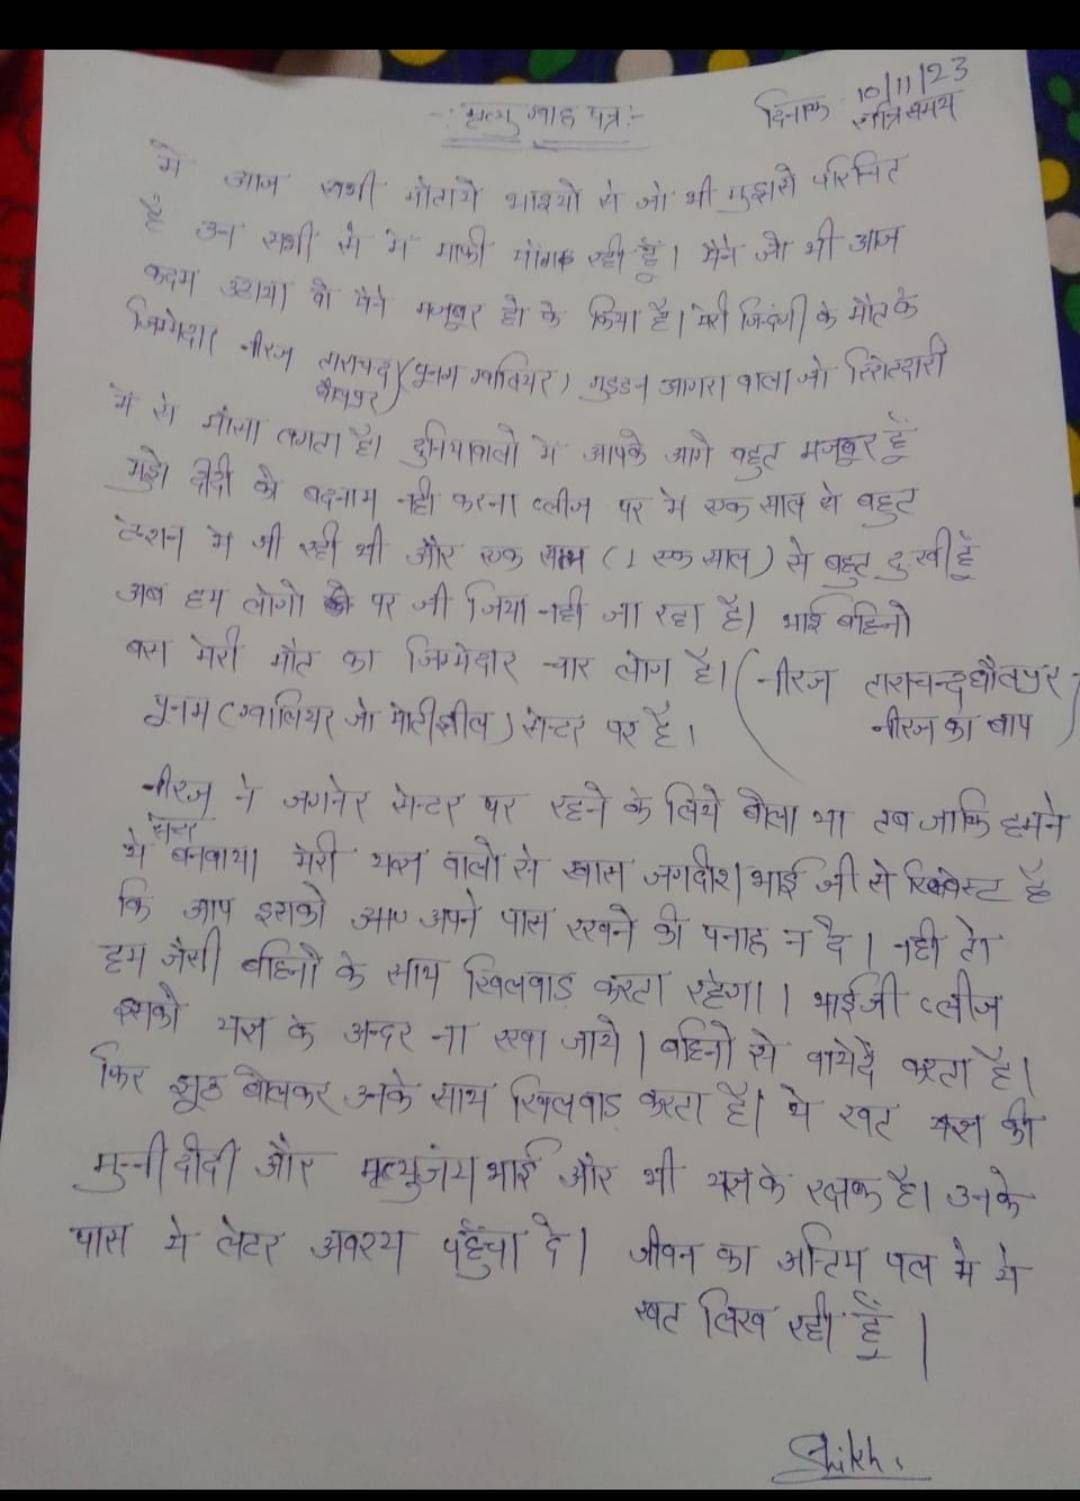 -: मृत्यु ग्वाह पत्र :-
दिनांक 10/11/23
रात्रि समय
मे आज सभी माताये भाइयो से जो भी मुझसे परिचित
है उन सभी से मे माफी मांग रही हूँ। मैने जो भी आज
कदम उठाया वो मैने मजबूर हो के किया है। मेरी जिंदगी के मौत के
जिम्मेदार नीरज ताराचंद (पूनम ग्वालियर) गुडडन आगरा वाला जो रिश्तेदारी
धौलपुर
मे से मौसा लगता है। दुनियावालो मे आपके आगे बहुत मजबूर हूँ
मुझे दीदी को बदनाम नही करना प्लीज पर मे एक साल से बहुत
टेंशन मे जी रही थी और एक साल (1 एक साल) से बहुत दुखी हूँ
अब हम लोगो पर जी जिया नही जा रहा है। भाई बहिनो
बस मेरी मौत का जिम्मेदार चार लोग है। (नीरज ताराचन्द धौलपुर
पूनम (ग्वालियर जो मोतीझील) सेन्टर पर है। नीरज का बाप)
नीरज ने जगनेर सेन्टर पर रहने के लिये बोला था तब जाकि हमने
ये बनवाया। मेरी यज्ञ वालो से खास जगदीश भाई जी से रिक्वेस्ट है
कि आप इसको आप अपने पास रखने की पनाह न दे। नही तो
हम जैसी बहिनो के साथ खिलवाड़ करता रहेगा। भाईजी प्लीज
इसको यज्ञ के अन्दर ना रखा जाये। बहिनो से वायेदे करता है।
फिर झूठ बोलकर उनके साथ खिलवाड़ करता है। ये खत यज्ञ की
मुन्नी दीदी और मृत्युजंय भाई और भी यज्ञ के रक्षक है। उनके
पास ये लेटर अवश्य पहुँचा दे। जीवन का अन्तिम पल मे ये
खत लिख रही हूँ।
Shikh.